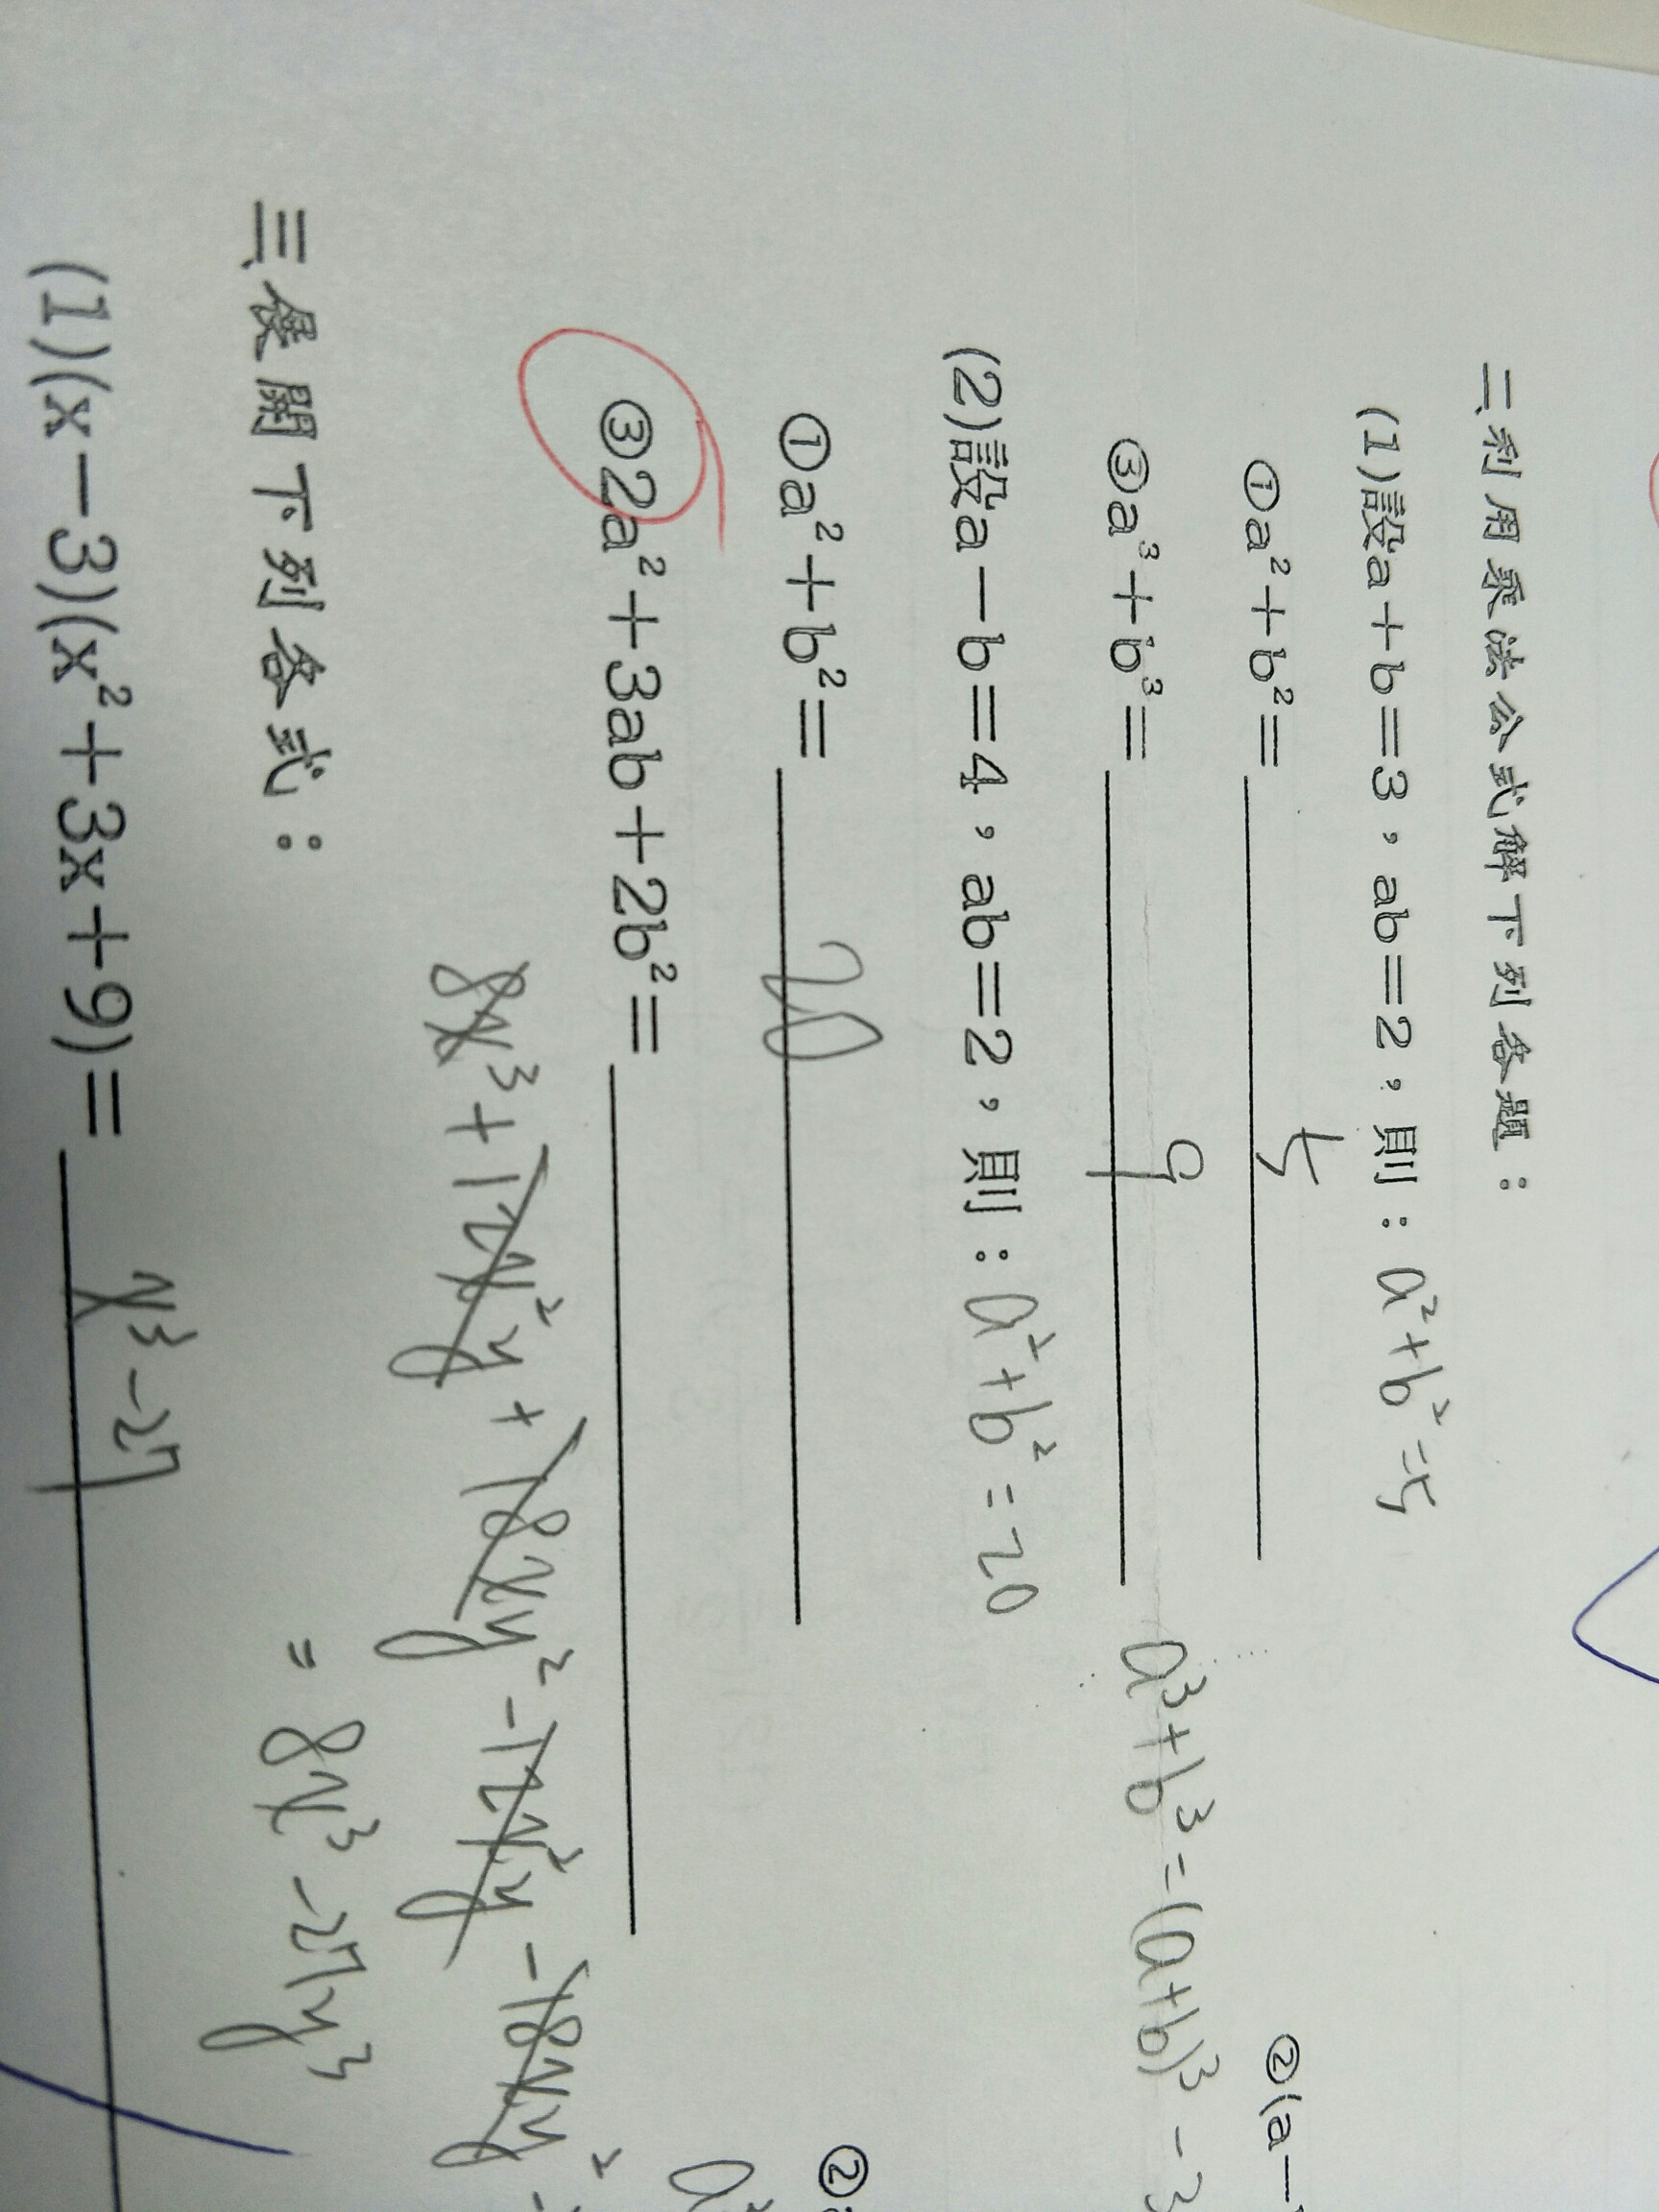 二利用乘法公式解下列各題：
(1)設a+b=3，ab=2，則：a²+b²=5
①a²+b²= 5 ②(a-
③a³+b³= 9 a³+b³=(a+b)³-3
(2)設a-b=4，ab=2，則：a²+b²=20
①a²+b²= 20 ②
③2a²+3ab+2b²=
8x³+12x²y+18xy²-12x²y-18xy²-
=8x³-27y³
三展開下列各式：
(1)(x-3)(x²+3x+9)= x³-27